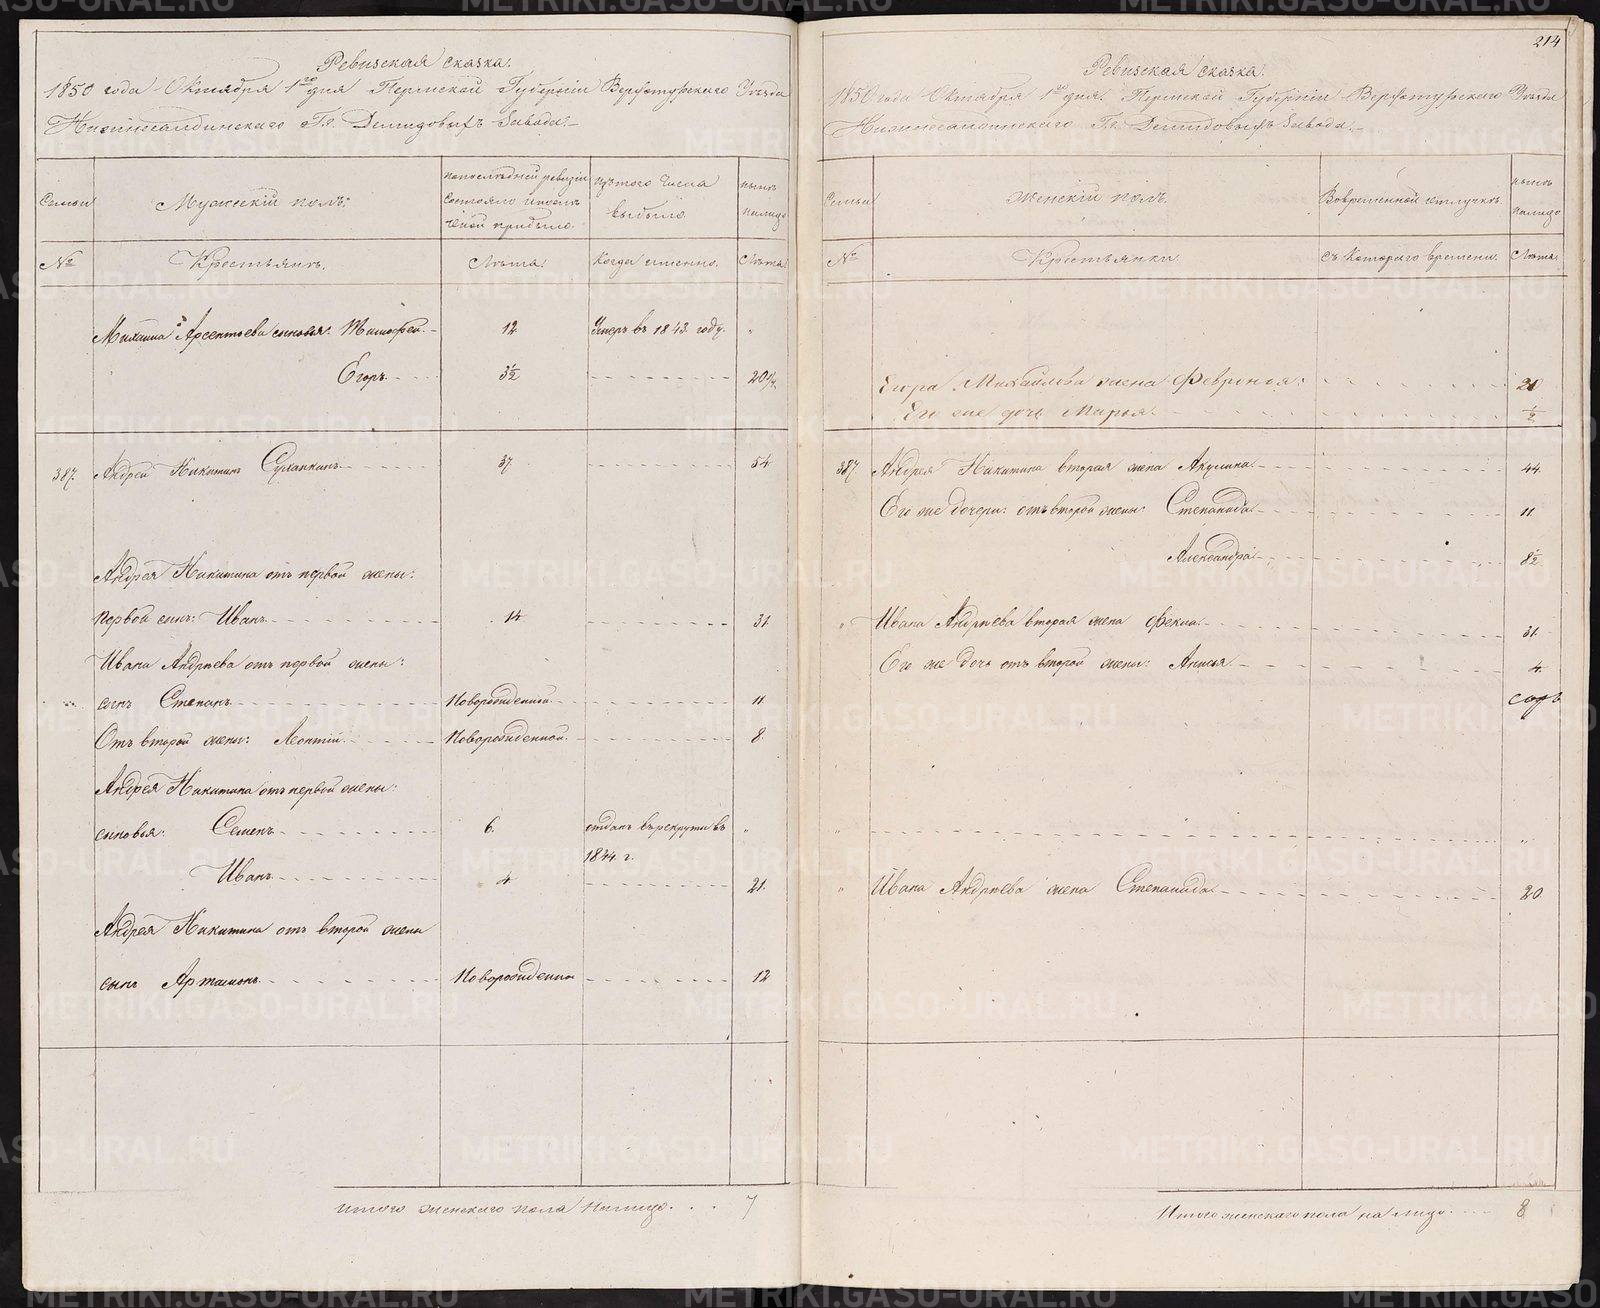 Ревизская сказка.
1850 года Октября 1го дня Пермской Губернии Верхотурскаго Уезда
Нижнесалдинскаго Гг. Демидовыхъ Завода.
Семьи
Мужескiй полъ.
по последней ревизiи состояло и после оной прибыло.
изъ того числа выбыло
ныне налицо
№
Крестьянъ.
Лета.
Когда именно.
Лета.
Михаила Арсентьева сыновья: Тимофей 12 Умеръ въ 1843 году. "
Егоръ 3½ 20¼
387. Андрей Никитинъ 37 54
Андрея Никитина отъ первой жены:
первой сынъ: Иванъ 14 31
Ивана Андреева отъ первой жены:
сынъ Степанъ Новорожденной 11
Отъ второй жены: Леонтiй Новорожденной 8
Андрея Никитина отъ первой жены:
сыновья: Семенъ 6. отданъ въ рекруты въ "
1844 г.
Иванъ 4 21.
Андрея Никитина отъ второй жены
сынъ Артамонъ Новорожденно 12
итого женскаго пола налицо 7
214
Ревизская сказка.
1850 года Октября 1го дня. Пермской Губернiи Верхотурскаго Уезда
Нижнесалдинскаго Гг. Демидовыхъ Завода.
Семьи
Женскiй полъ.
Во временной отлучке.
ныне налицо
№
Крестьянки.
съ котораго времени.
Лета.
Егора Михайлова жена Февронья: 20
Его же дочь Марья. ½
387 Андрея Никитина вторая жена Акулина 44
Его же дочери: отъ второй жены: Степанида 11.
Александра 8½
" Ивана Андреева вторая жена Фекла 31.
Его же дочь отъ второй жены: Анисья 4.
" "
" Ивана Андреева жена Степанида 20
Итого женскаго пола на лицо 8
METRIKI.GASO-URAL.RU